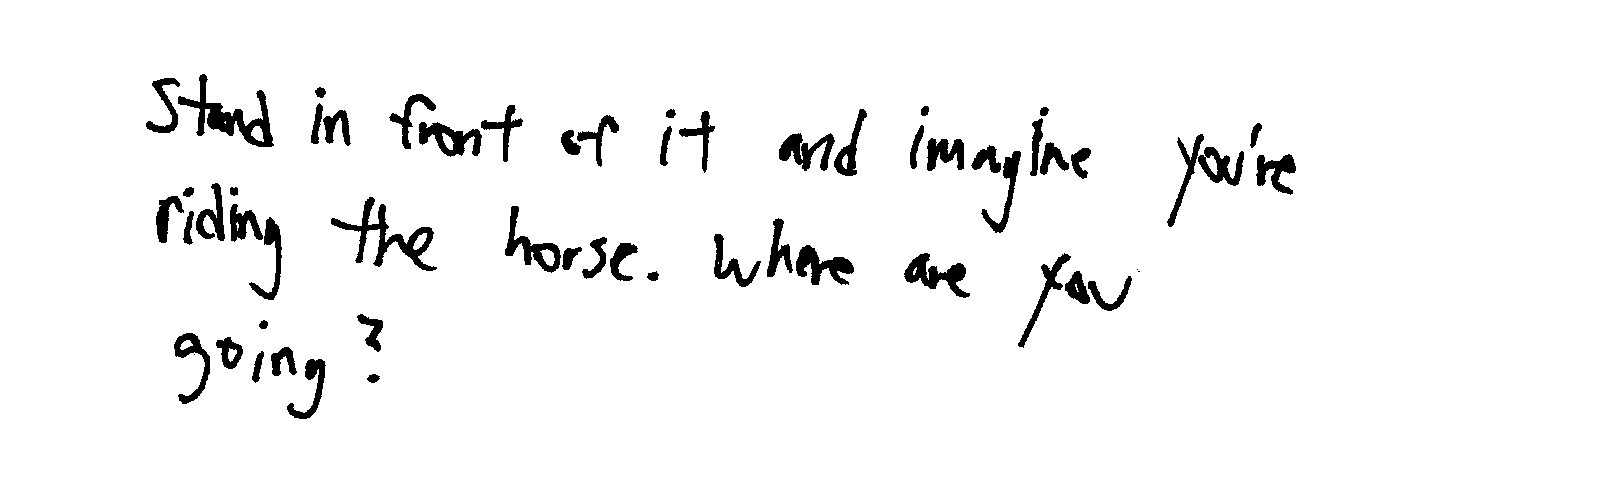 Stand in front of it and imagine you're
riding the horse. Where are you
going?